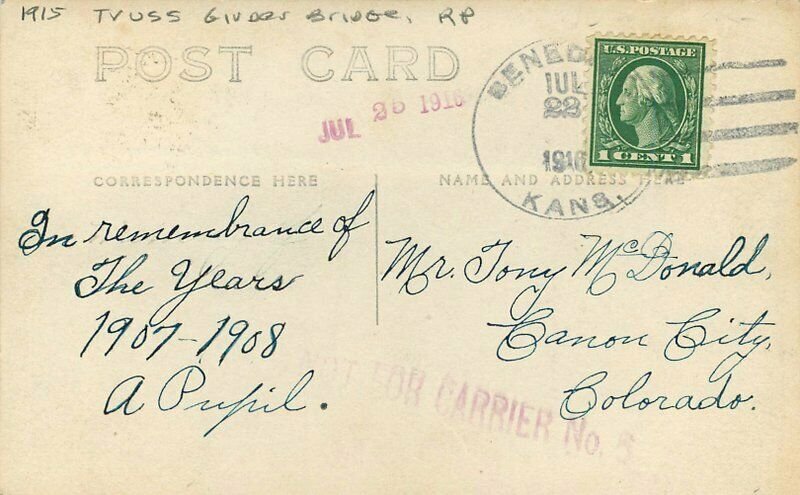 1915 Truss Girder Bridge, RP
POST CARD
JUL 25 1916
BENED
JUL
22
1916
KANS.
U.S. POSTAGE
1 CENT 1
CORRESPONDENCE HERE
NAME AND ADDRESS HERE
In remembrance of
The Years
1907-1908
A Pupil.
Mr. Tony McDonald,
Canon City,
Colorado.
NOT FOR CARRIER No. 5